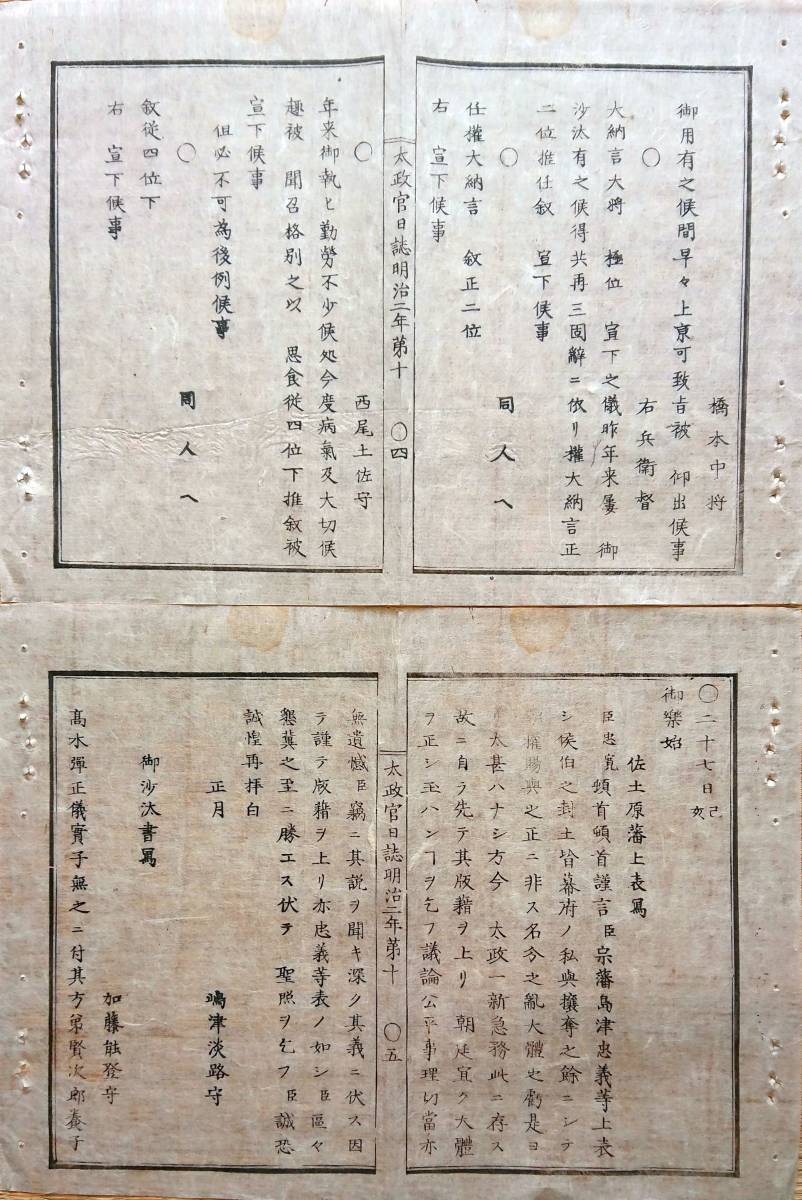 橋本中将
御用有之候間早々上京可致旨被　仰出候事
〇　右兵衛督
大納言大将　極位　宣下之儀昨年来屡　御
沙汰有之候得共再三固辭ニ依リ權大納言正
二位推任叙　宣下候事
〇　同人へ
任權大納言　叙正二位
右　宣下候事
太政官日誌明治二年第十　〇四
〇　西尾土佐守
年来御執匕勤勞不少候処今度病氣及大切候
趣被　聞召格別之以　思食従四位下推叙被
宣下候事
但必不可為後例候事
〇　同人へ
叙従四位下
右　宣下候事
〇二十七日己亥
御樂始
佐土原藩上表寫
臣忠寛頓首頓首謹言臣宗藩島津忠義等上表
シ侯伯之封土皆幕府ノ私與攘奪之餘ニシテ
權賜與之正ニ非ス名分之亂大體之虧是ヨ
リ太甚ハナシ方今　太政一新急務此ニ存ス
故ニ自ラ先テ其版籍ヲ上リ　朝廷宜ク大體
ヲ正シ玉ハンヿヲ乞フ議論公平事理切當亦
無遺憾臣竊ニ其説ヲ聞キ深ク其義ニ伏ス因
テ謹テ版籍ヲ上リ亦忠義等表ノ如シ臣區々
懇冀之至ニ勝エス伏テ　聖照ヲ乞フ臣誠恐
誠惶再拝白
正月　嶋津淡路守
太政官日誌明治二年第十　〇五
御沙汰書寫
加藤能登守
高木彈正儀實子無之ニ付其方弟賢次郎養子